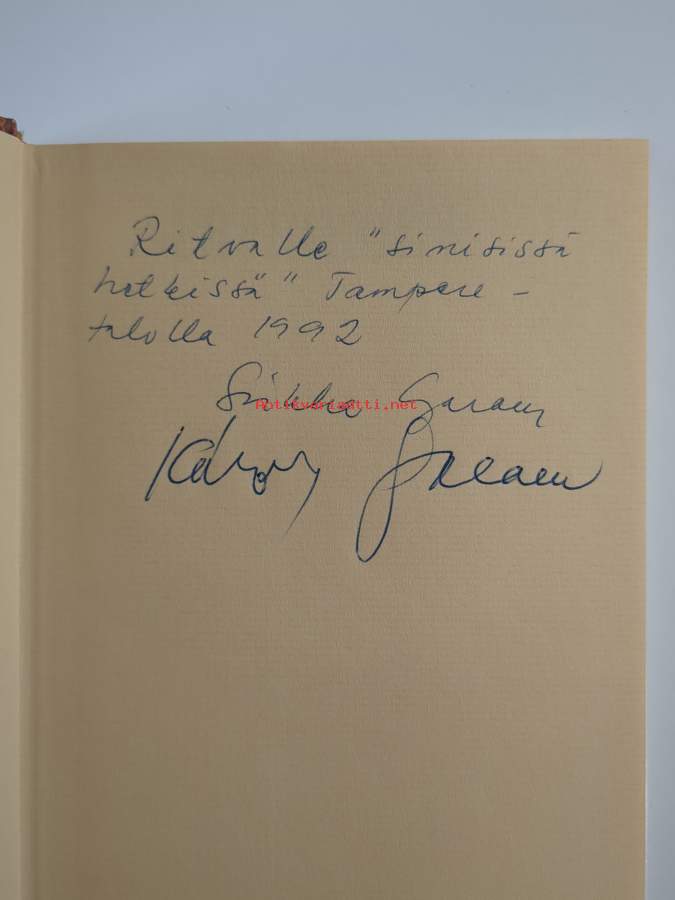 Ritvalle "sinisissä
hetkissä" Tampere-
talolla 1992
Sirkka Garam
Antikvariaatti.net
Károly Garam